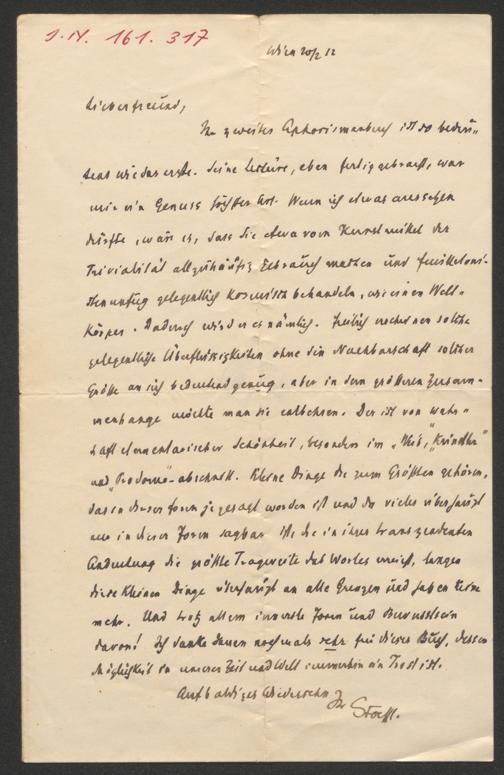 I.N. 161.317
Wien 20/2 12
Lieber Freund,
Ihr zweites Aphorismenbuch ist so bedeu-
tend wie das erste. Seine Lectüre, eben fertig gebracht, war
mir ein Genuss höchster Art. Wenn ich etwas aussetzen
dürfte, wär es, dass Sie etwa vom Kunstmittel der
Trivialität allzuhäufig Gebrauch machen und feuilletoni-
stenunfug gelegentlich kosmisch behandeln, wie einen Welt-
körper. Dadurch wird er es nämlich. Freilich erscheinen solche
gelegentliche Überflüssigkeiten ohne die Nachbarschaft solcher
Größe an sich bedeutend genug, aber in dem größeren Zusam-
menhange möchte man sie entbehren. Der ist von wahr-
haft elementarischer Schönheit, besonders im
und "Prodomo"-abschnitt. Kleine Dinge die zum Größten gehören,
das in dieser Form je gesagt worden ist und da vieles überhaupt
nur in dieser Form sagbar ist, die in ihrer transzendenten
Andeutung die größte Tragweite des Wortes erreicht, langen
diese kleinen Dinge überhaupt an alle Grenzen und haben keine
mehr. Und trotz allem innerste Form und Bewusstsein
davon! Ich danke Ihnen nochmals sehr für dieses Buch, dessen
Möglichkeit in unserer Zeit und Welt immerhin ein Trost ist.
Auf baldiges Wiedersehn Ihr
Stoessl.